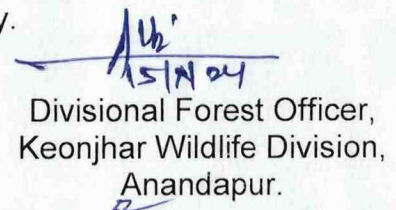 y.
Divisional Forest Officer,
Keonjhar Wildlife Division,
Anandapur.